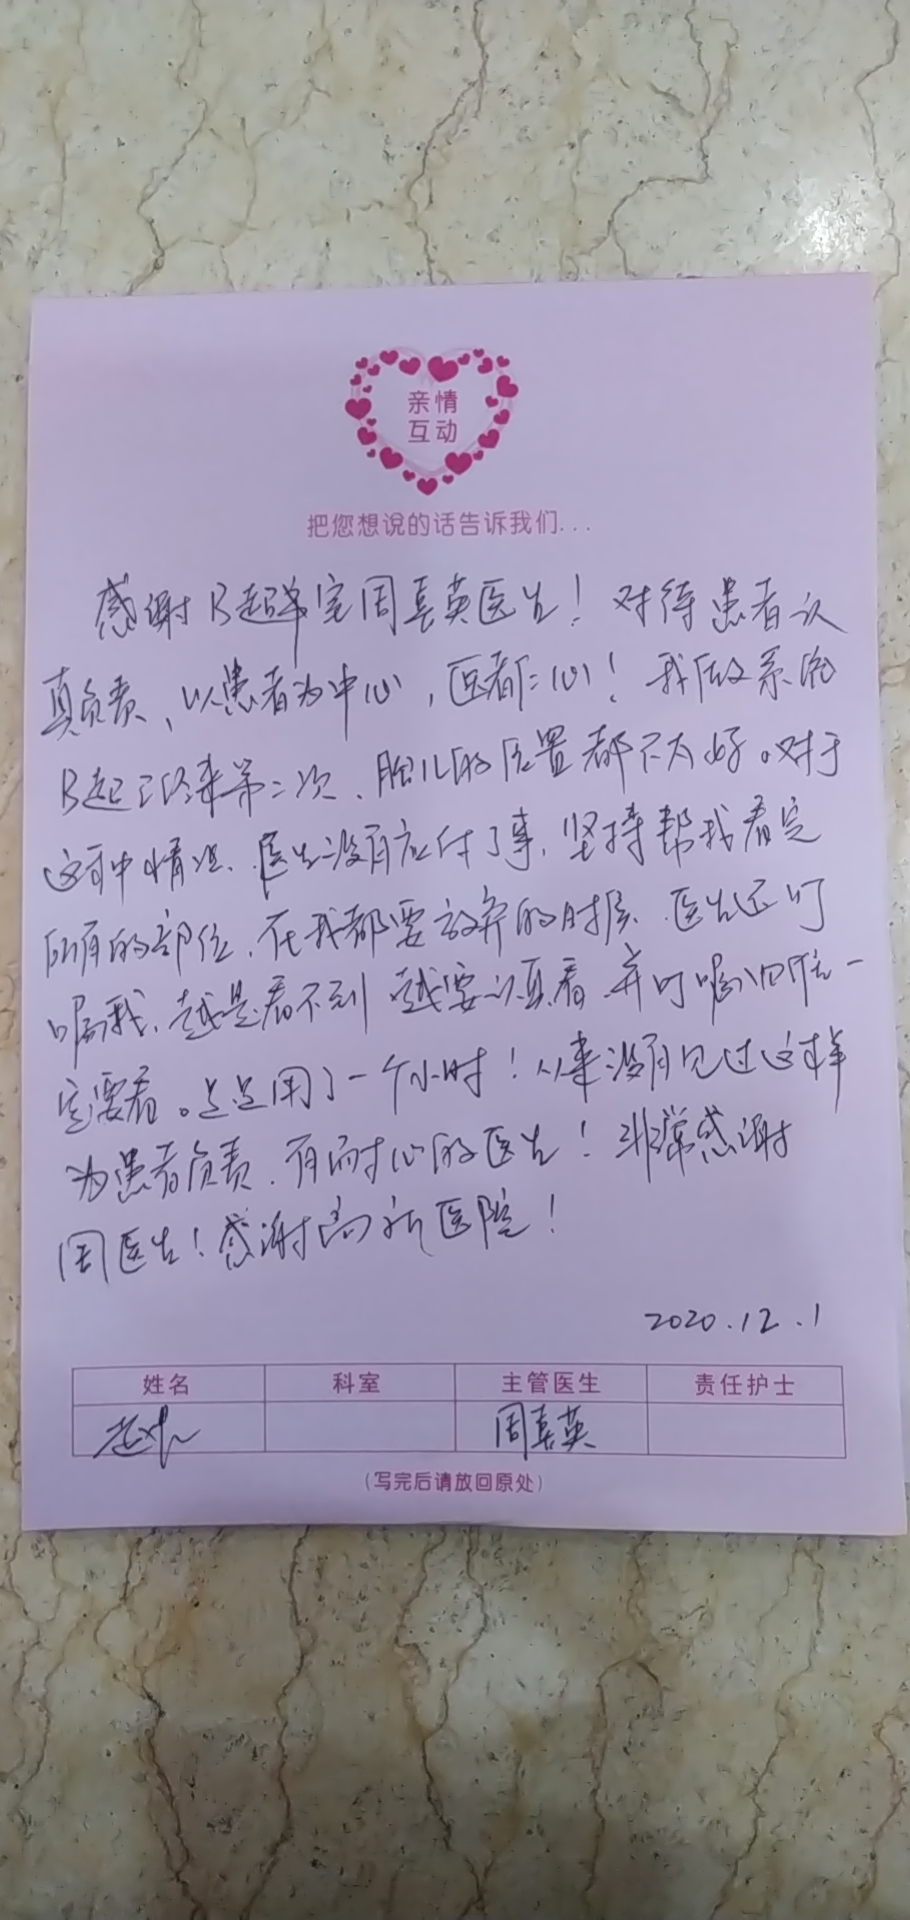 亲情
互动
把您想说的话告诉我们...
感谢B超单室周喜英医生！对待患者认
真负责、以患者为中心，医者仁心！我做系统
B超已经来第二次、胎儿的位置都不太好。对于
这种情况、医生没有应付了事、坚持帮我看完
所有的部位、在我都要放弃的时候、医生还叮
嘱我、越是看不到 越要认真看、并叮嘱
定要看。足足用了一个小时！从来没有见过这样
为患者负责、有耐心的医生！非常感谢
周医生！感谢高新医院！
2020.12.1
姓名 科室 主管医生 责任护士
周喜英
(写完后请放回原处)